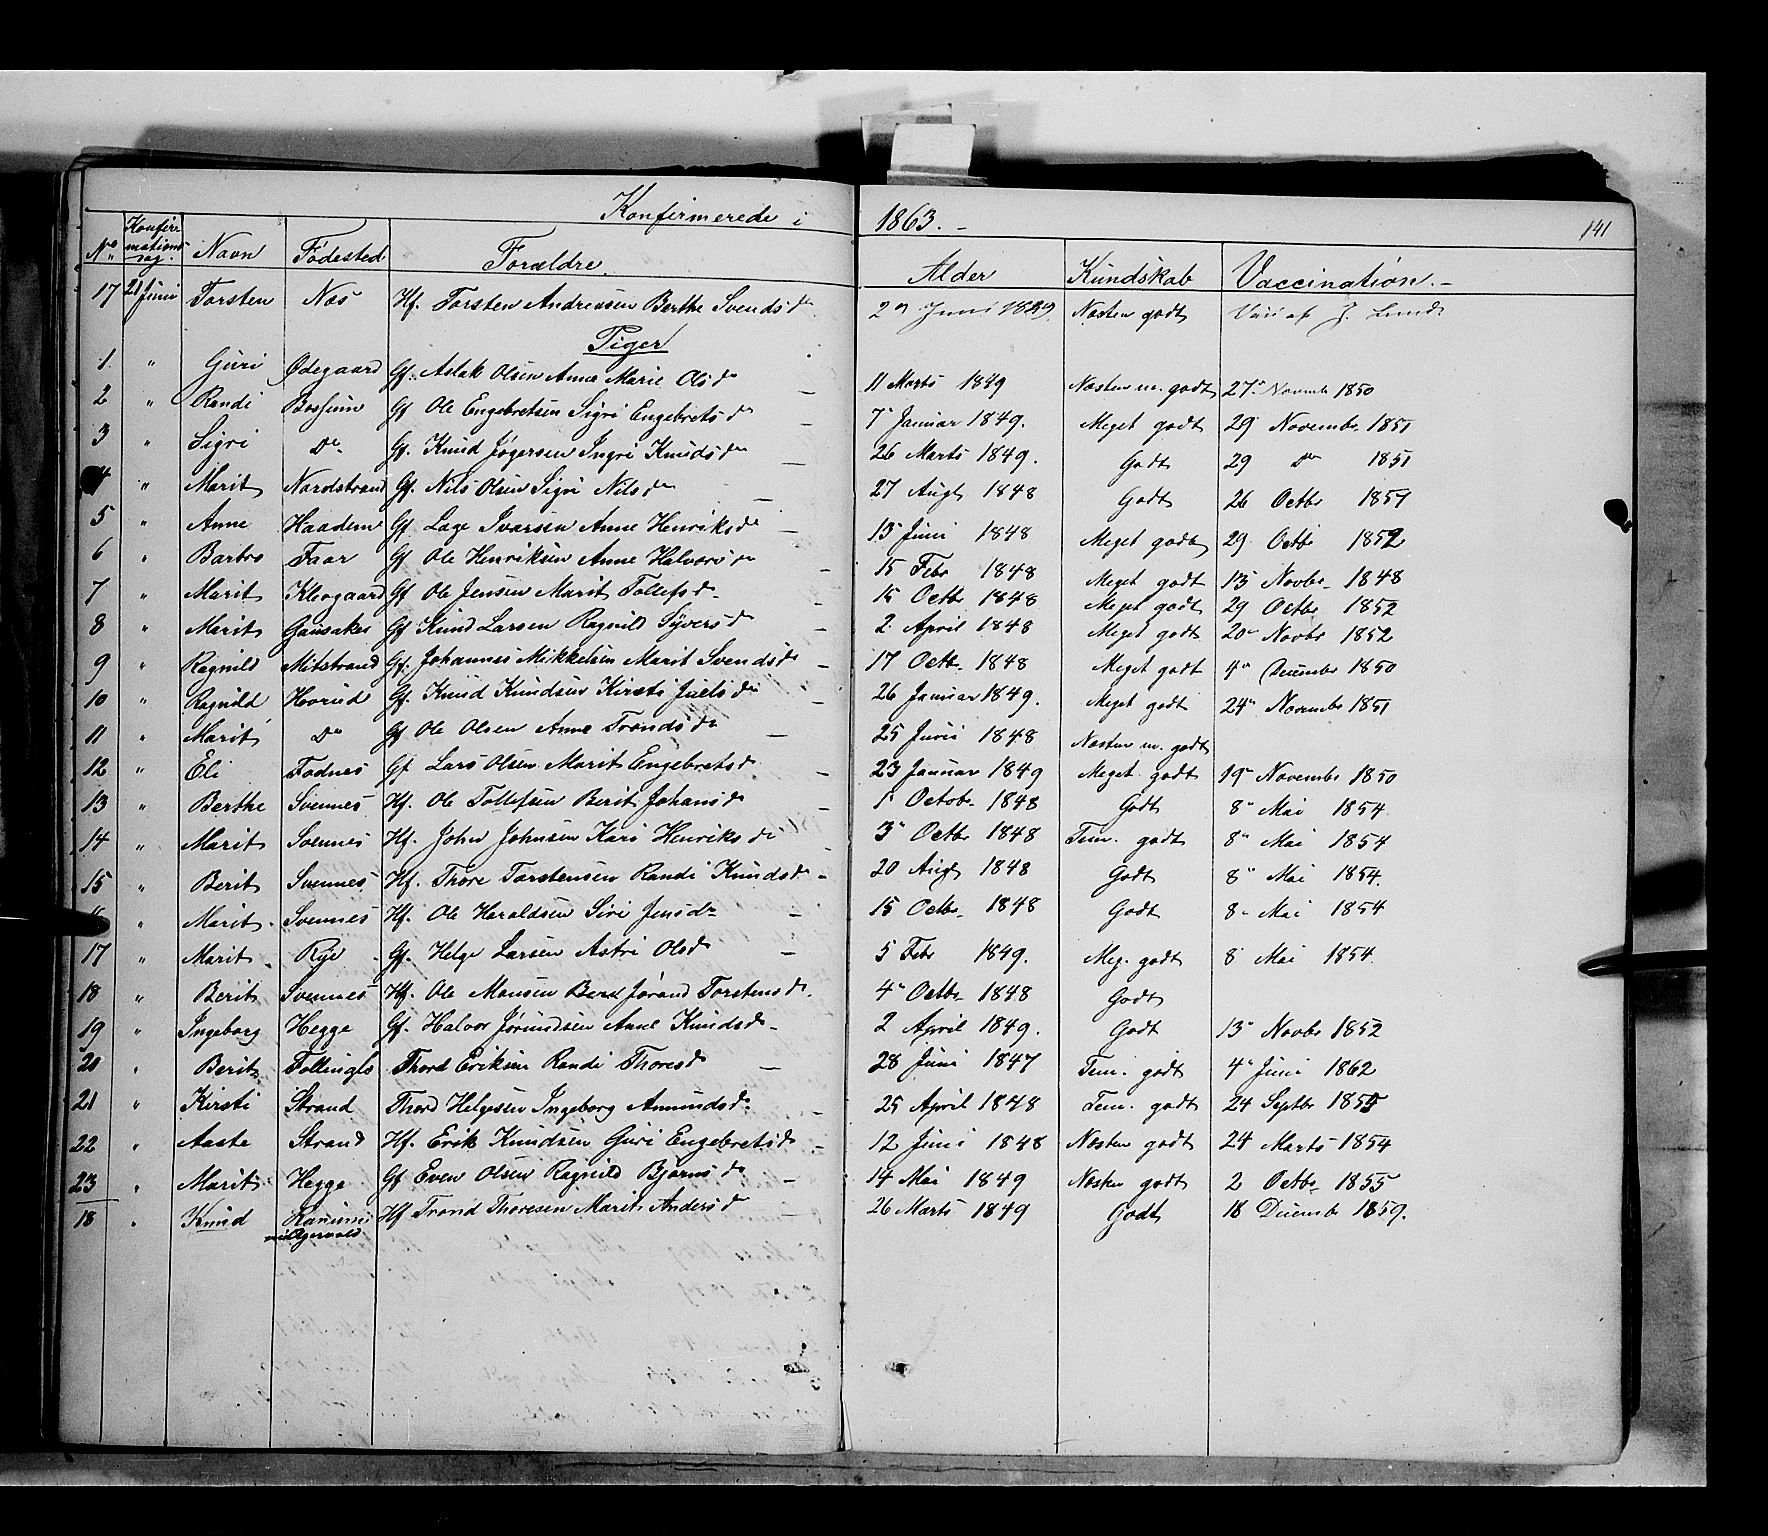 Konfirmerede i 1863.- 141
No Konfirmationsdag. Navn Födested Forældre. Alder Kundskab Vaccination.-
17 21 Juni Torsten Næs Hf. Torsten Andreasen Berthe Svendsdr 29 Juni 1849. Næsten godt Vacc af J. Lund
Piger
1. " Guri Ødegaard Gf. Aslak Olsen Anne Marie Olsdr - 11 Marts 1849 Næsten m. godt 27 Novembr 1850
2 " Randi Gf Ole Engebretsen Sigri Engebretsdr - 7 Januar 1849. Meget godt 29 Novembr 1851
3 " Sigri Do Gf. Knud Ingri Knudsdr - 26 Marts 1849. Godt 29 Do 1851
4 " Marit Nordstrand Gf. Nils Olsen Sigri Nilsdr - 27 Augt 1848 Godt 26 Octbr 1851
5 " Anne Haadem Gf Lage Ivarsen Anne Henriksdr - 13 Juni 1848 Meget godt 29 Octbr 1852
6 " Barbro Faar Gf Ole Henriksen Anne Halvorsdr - 15 Febr 1848 Meget godt 13 Novbr 1848
7 " Marit Gf Ole Jensen Marit Tollefsdr - 15 Octbr 1848 Meget godt 29 Octbr 1852
8 " Marit Gausaker Gf Knud Larsen Ragnild Syversdr - 2 April 1848 Meget godt 20 Novbr 1852
9 " Ragnild Midstrand Gf. Johannes Mikkelsen Marit Svendsdr - 17 Octbr 1848 Meget godt 4 Decembr 1850
10 " Ragnild Hovrud Gf. Knud Knudsen Kirsti Juelsdr - 26 Januar 1849. Meget godt 24 Novembr 1851
11 " Marit Do Gf Ole Olsen Anne Trondsdr - 25 Juni 1848 Næsten m. godt
12 " Eli Fodnes Gf Lars Olsen Marit Engebretsdr - 23 Januar 1849 Meget godt 19 Novembr 1850
13 " Berthe Svennes Hf. Ole Tollefsen Berit Johansdr - 1 Octobr 1848 Godt 8 Mai 1854
14 " Marit Svennes Hf. John Johnsen Kari Henriksdr - 3 Octbr 1848 Tem. godt 8 Mai 1854
15 " Berit Svennes Hf. Thore Torstensen Randi Knudsdr - 20 Aug 1848 Godt 8 Mai 1854.
" Marit Svennes Hf. Ole Haraldsen Siri Jensdr - 15 Octbr 1848 Godt 8 Mai 1854
17 " Marit Rye Gf. Helge Larsen Astri Olsdr - 5 Febr 1849. Meg. godt 8 Mai 1854.
18 " Berit Svennes Hf. Ole Monsen Jorand Torstensdr. 4 Octbr 1848 Godt
19 " Ingeborg Hegge Gf. Halvor Jørundsen Anne Knudsdr - 2 April 1849. Godt 13 Novbr 1852
20 " Berit Thord Eriksen Randi Thoresdr - 28 Juni 1847 Tem. godt 4 Juni 1862
21 " Kirsti Strand Thord Helgesen Ingeborg Amundsdr - 25 April 1848 Tem. godt 24 Septbr 1855
22 " Aaste Strand Hf. Erik Knudsen Guri Engebretsdr - 12 Juni 1848 Næsten godt 24 Marts 1854
23 " Marit Hegge Gf Even Olsen Ragnild Bjørnsdr - 14 Mai 1849 Næsten godt 2 Octbr 1855
18 " Knud Hf Trond Thoresen Marit Andersdr 26 Marts 1849 Godt 18 Decembr 1859.